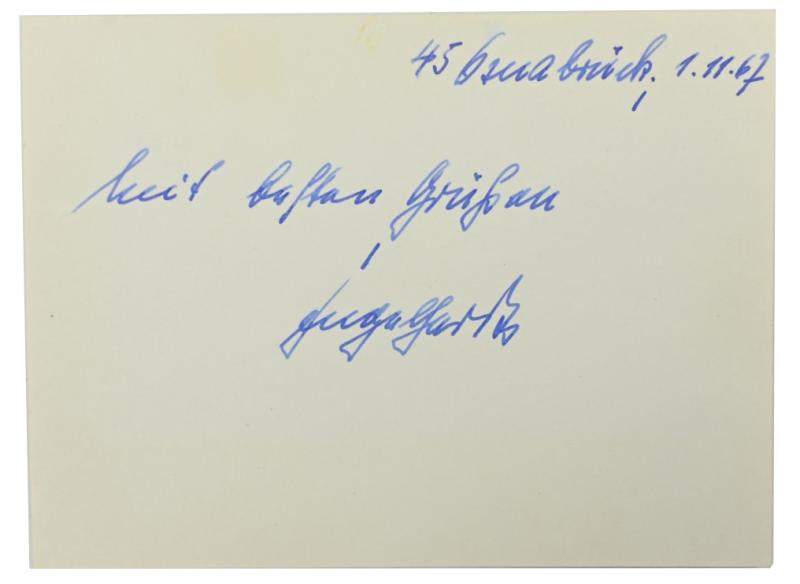 45 Osnabrück, 1.11.67
Mit besten Grüßen